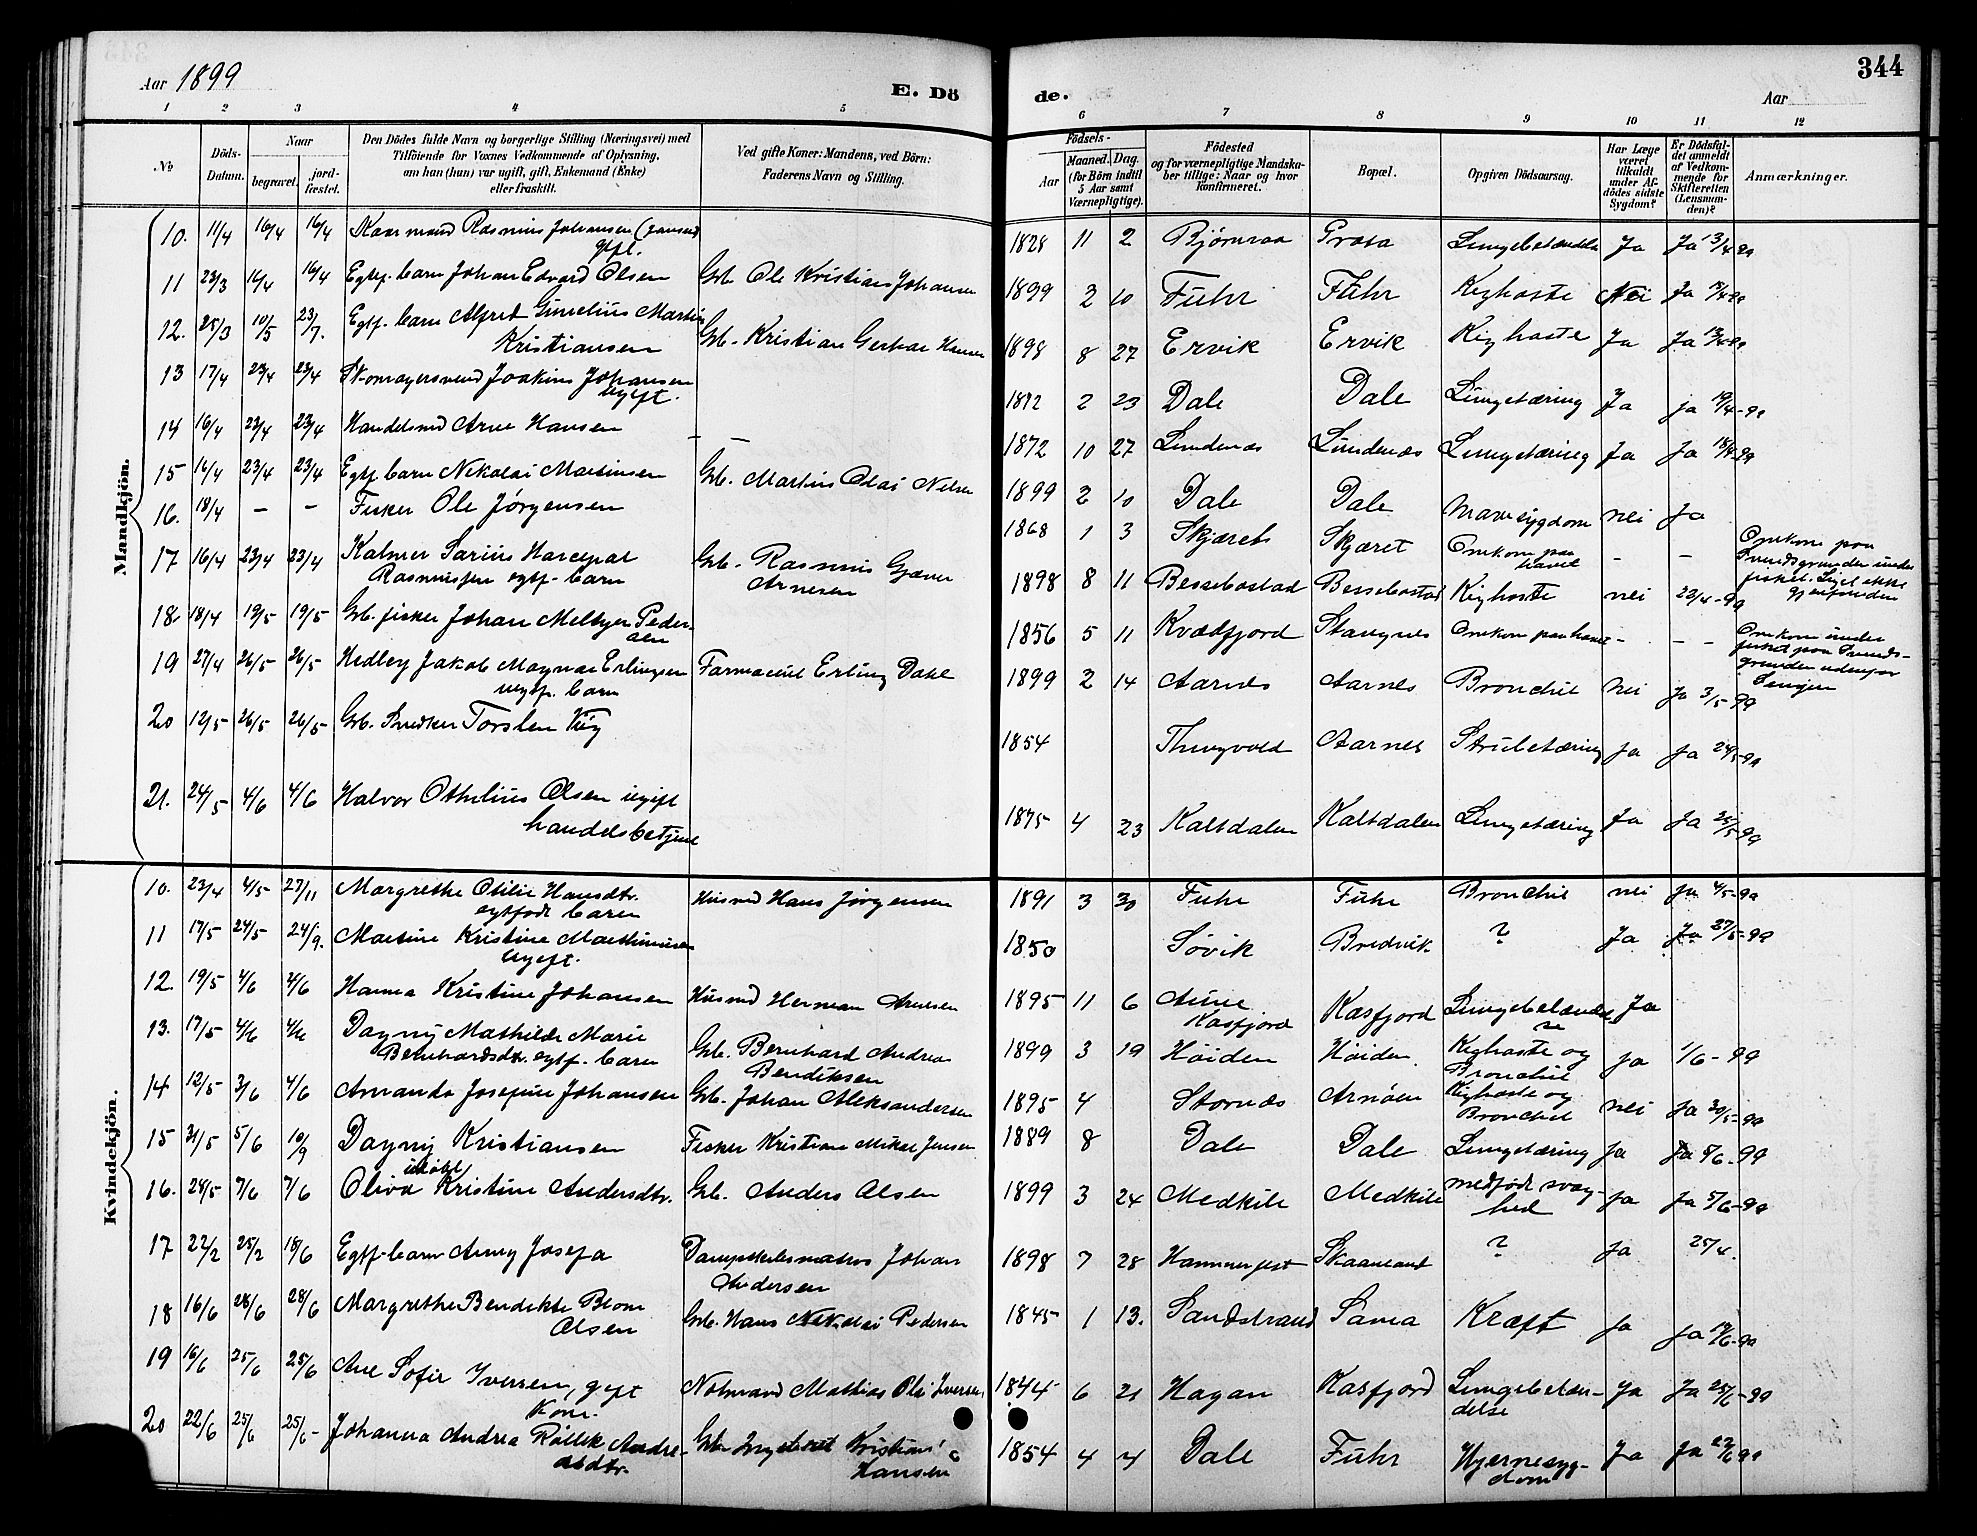 Aar 1899
E. Dö
de.
344
Aar
1 2 3 4 5 6 7 8 9 10 11 12
No
Döds-
Datum.
Naar
begravet.
jord-
festet.
Den Dödes fulde Navn og borgerlige Stilling (Næringsvei) med
Tilföiende for Voxnes Vedkommende af Oplysning,
om han (hun) var ugift, gift, Enkemand (Enke)
eller fraskilt.
Ved gifte Koner: Mandens, ved Börn:
Faderens Navn og Stilling.
Födsels-
Aar
Maaned. Dag.
(for Börn indtil
5 Aar samt
Værnepligtige).
Födested
og for værnepligtige Mandska-
ber tillige: Naar og hvor
konfirmeret.
Bopæl.
Opgiven Dödsaarsag.
Har Læge
været
tilkaldt
under Af-
dödes sidste
Sygdom?
Er Dödsfal-
det anmeldt
af Vedkom-
mende for
Skifteretten
(Lensman-
den)?
Anmærkninger.
Mandkjön.
10. 11/4 16/4 16/4 Rasmus Johansen
gift. 1828 11 2 Grasa Ja Ja 13/4 99
11 23/3 16/4 16/4 Egtf. barn Johan Edvard Olsen Gb. Ole Kristian Johansen 1899 2 10 Fuhr Fuhr Kighoste Nei Ja
12. 25/3 10/5 23/7. Egtf. barn Alfret Martin
Kristiansen Gb. Kristian 1898 8 27 Ervik Ervik Kighoste Ja Ja
13 17/4 23/4 23/4 Joakim Johansen
ugift. 2 23 Dale Dale Lungetæring Ja ja 19/4-99
14 16/4 23/4 23/4 Arne Hansen – – 1872 10 27 Lundenæs Lundenæs Lungetæring Ja Ja
15 16/4 23/4 23/4 Egtf barn Nikolai Martinsen Gb. Martin Olai 1899 2 10 Dale Dale Mavesygdom nei Ja
16. 18/4 – – Fisker Ole Jörgensen 1868 1 3 Skjæret Skjæret Omkom paa
havet – – Omkom paa
Svendsgrunden under
fisket. Liget ikke
gjenfunden
17 16/4 23/4 23/4
Rasmussen egtf. barn Gb. Rasmus
Arnesen 1898 8 11 Bessebostad Bessebostad Kighoste nei 23/4-99
18. 18/4 19/5 19/5 Gb. fisker Johan Peder-
sen 1856 5 11 Kvædfjord Stangnes Omkom paa havet – – – Omkom under
fisket paa Svends-
grunden udenfor
Senjen
19 27/4 26/5 26/5 Hedley Jakob Magnar Erlingsen
uegtf. barn Farmaceut Erling Dahl 1899 2 14 Aarnes Aarnes Bronchit Nei Ja 3/5-99
20 12/5 26/5 26/5 Gb. Snedker Torsten 1854 Thingvold Aarnes Strubetæring ja Ja
21. 24/5 4/6 4/6 Halvor Othelius Olsen ugift
handelsbetjent 1875 4 23 Kaltdalen Kaltdalen Lungetæring Ja Ja
Kvindekjön.
10. 23/4 4/5 27/11 Margrethe Otilie Hansdtr.
egtfödt barn Husmd Hans Jörgensen 1891 3 30 Fuhr Fuhr Bronchit nei ja 4/5-99
11 17/5 24/5 24/9. Martine Kristine
ugift. 1850 Søvik Bredvik ? Ja Ja 27/5-99
12. 19/5 4/6 4/6 Hanna Kristine Johansen Husmd Herman 1895 11 6
Kasfjord Kasfjord Lungebetændel
se Ja
13. 17/5 4/6 4/6 Dagny Mathilde Marie
Bernhardsdtr. egtf. barn Gb. Bernhard Andreas
Bendiksen 1899 3 19 Høiden Høiden Kighoste og
Bronchit ja 1/6-99
14 12/5 3/6 4/6 Amanda Josefine Johansen Gb. Johan Aleksandersen 1895 4 Stornæs Arnøen Kighoste og
Bronchit nei Ja 30/5-99
15 31/5 5/6 10/9 Dagny Kristiansen Fisker Kristian Mikal Jensen 1889 8 Dale Dale Lungetæring Ja Ja 5/6-99
16. 24/5 7/6 7/6 Oliva Kristine Andersdtr. Gb. Anders Olsen 1899 3 24 Medkile Medkile medfödt svag-
hed ja Ja 5/6-99
17 22/2 25/2 18/6 Egtf. barn Anny Josefa Dampskibsmatros Johan
Andersen 1898 7 28 Hammerfest Skaanland ? Ja 25/4.
18 16/6 28/6 28/6 Margrethe Bendikte Blom
Olsen Gb. Hans Nikolai Pedersen 1845 1 13. Sandstrand Sama Kræft Ja Ja 19/6-99
19 16/6 25/6 25/6 Ane Sofie Iversen, gift
Kone. Mathias Ole Iversen 1844 6 21 Hagan Kasfjord Lungebetæn-
delse Ja Ja 25/6-99
20 22/6 25/6 25/6 Johanna Andrea Röllek Andre-
asdtr. Gb. Ingebret Kristian
Hansen 1854 4 4 Dale Fuhr Hjernesyg-
dom Ja Ja